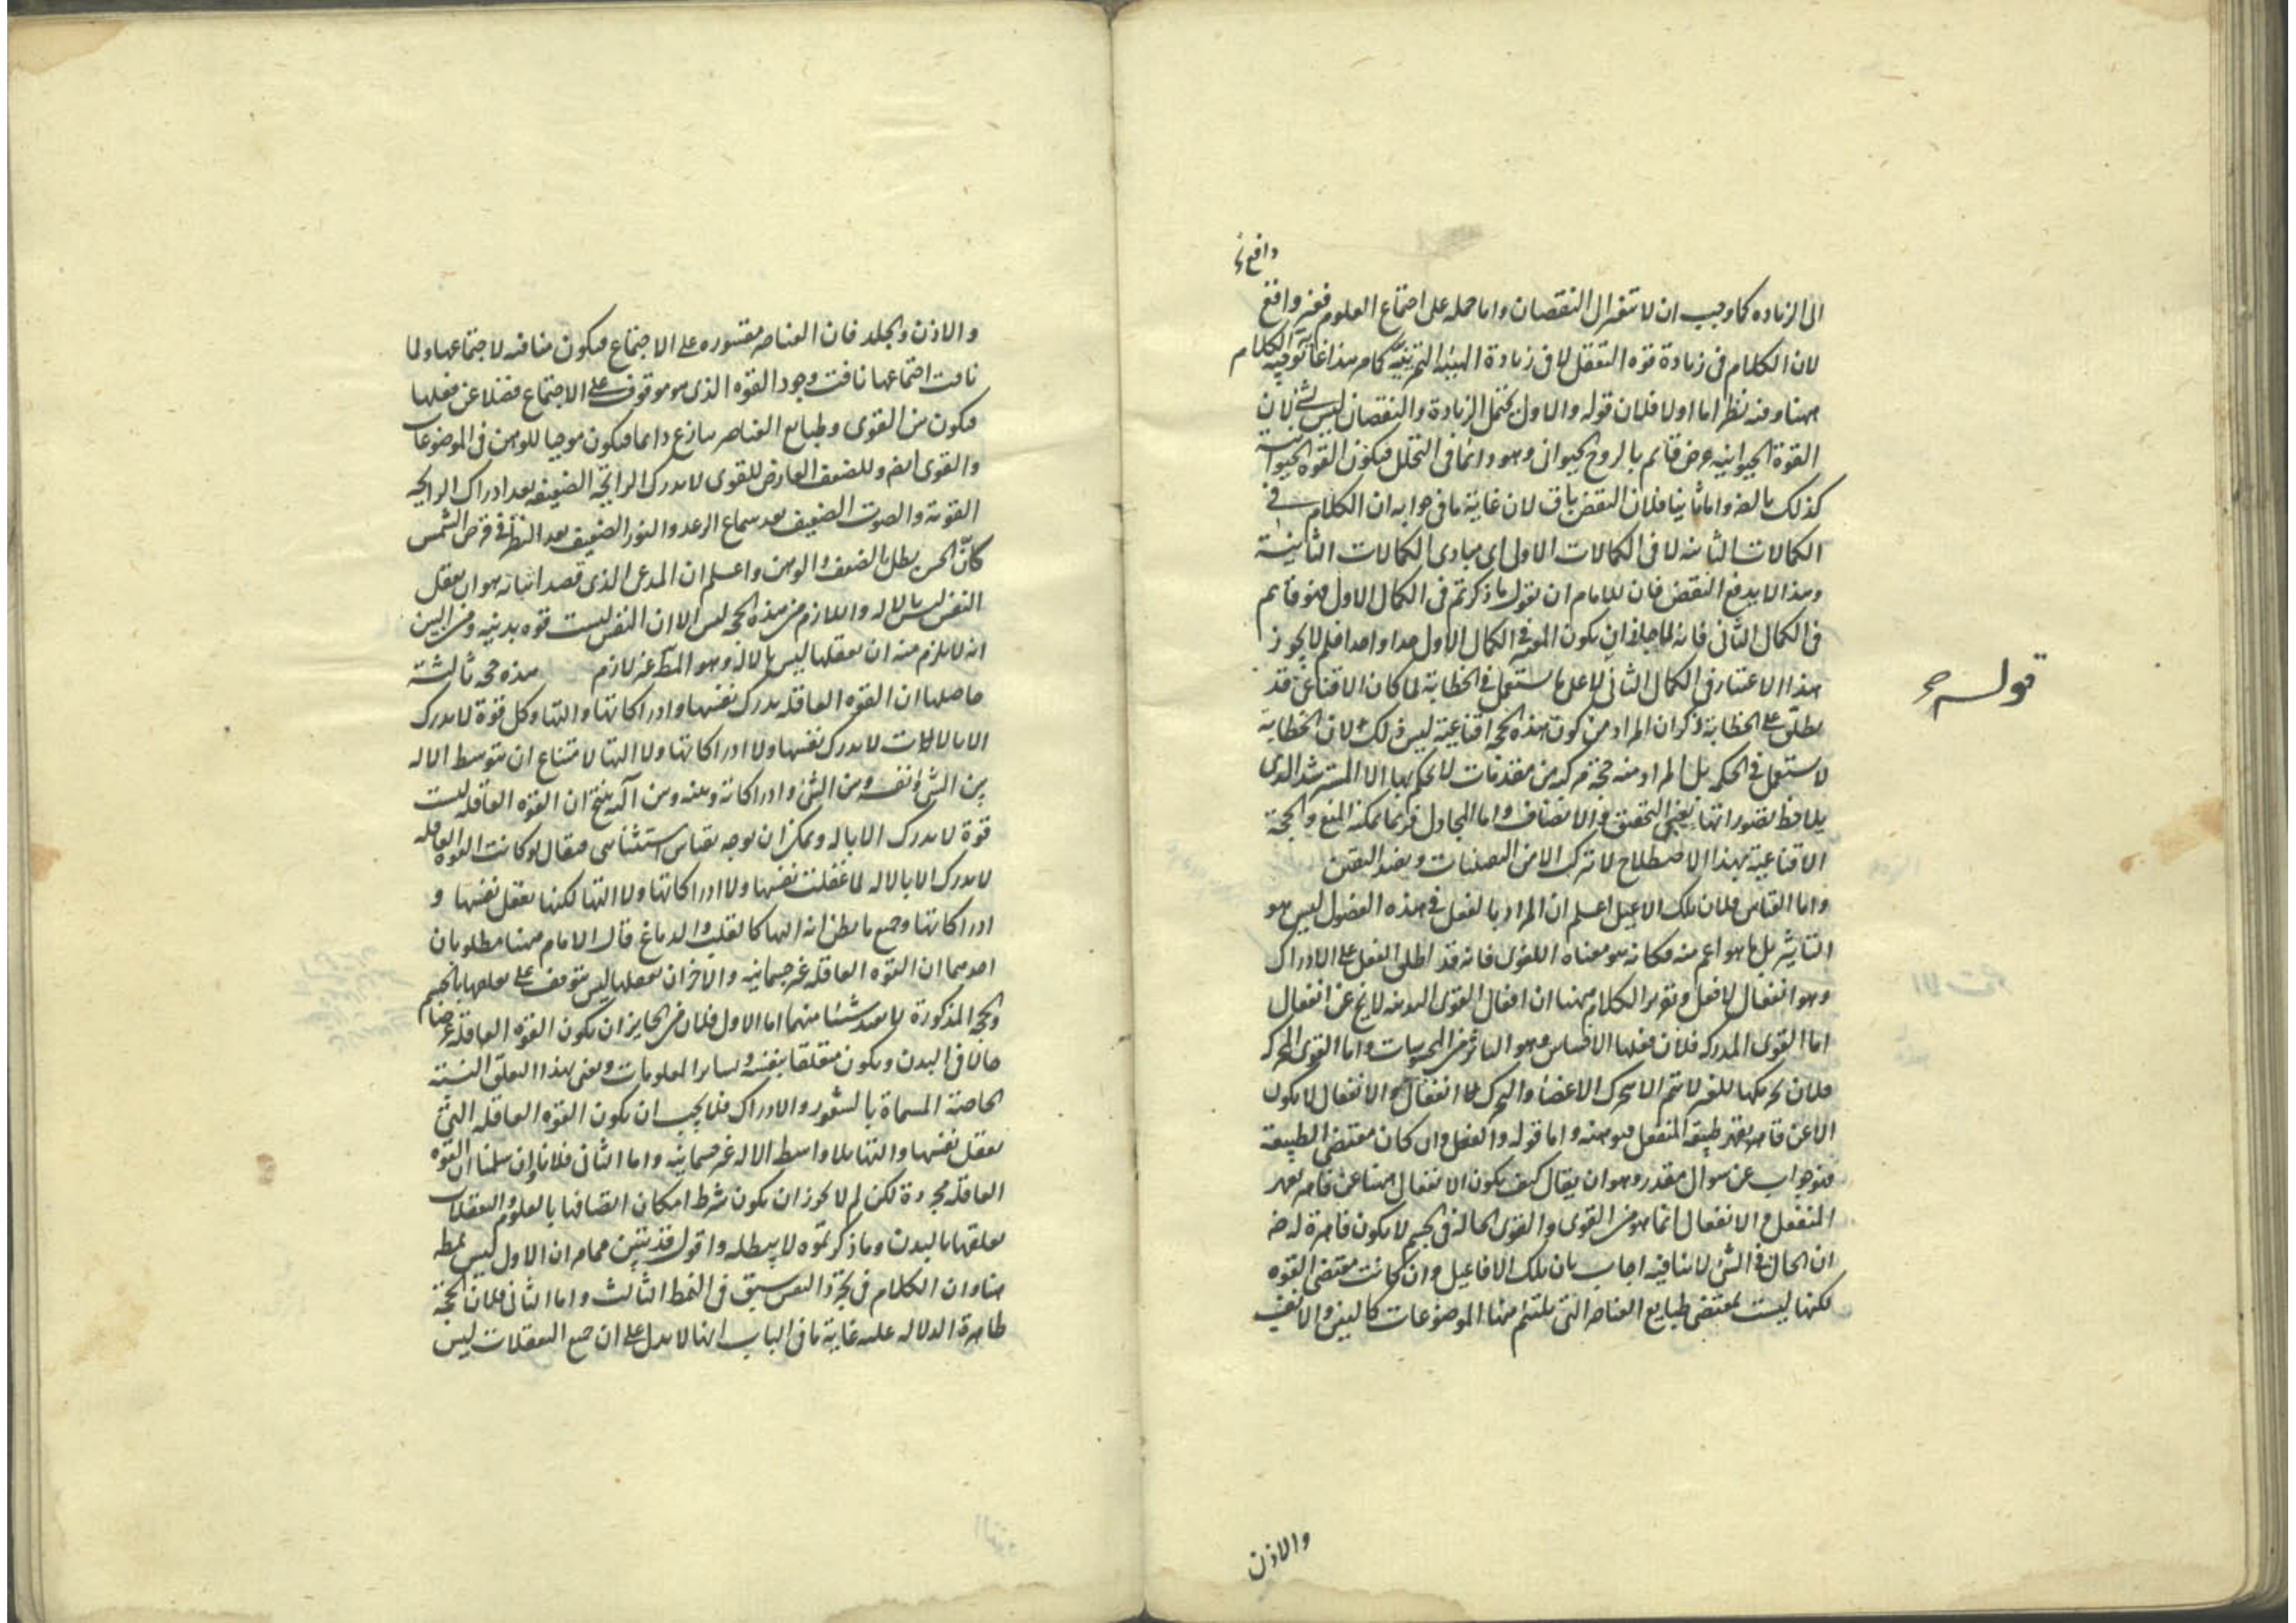 دافع نخ
الى الزيادة كما وجب ان لا تتغير الى النقصان واما حمله على اجتماع العلوم فغير واقع
لان الكلام فى زيادة قوة التعقل لا فى زيادة الهيئة التمرينية كما مر هذا غاية توجيه الكلام
ههنا وفيه نظر اما اولا فلان قوله والاول يحتمل الزيادة والنقصان ليس بشئ لان
القوة الحيوانيه عرض قايم بالروح الحيوانى وهو دائما فى التحلل فيكون القوة الحيوانية
كذلك بالضرورة واما ثانيا فلان النقض باق لان غاية ما فى جوابه ان الكلام فى
الكمالات الثانيه لا فى الكمالات الاولى اى مبادى الكمالات الثانية
وهذا لا يدفع النقض فان للامام ان يقول ما ذكرتم فى الكمال الاول فهو قايم
فى الكمال الثانى فانه لما جاز ان يكون المعتبر فى الكمال الاول حدا واحدا فلم لا يجوز
هذا الاعتبار فى الكمال الثانى لا على ما يستعمل فى الخطابة لما كان الاقناعى قد
يطلق على الخطابة ذكر ان المراد من كون هذه الحجة اقناعية ليس ذلك لان الخطابة
لا يستعمل فى الحكمة بل المراد منه حجة مركبه من مقدمات لا يحكم بها الا المسترشد الذى
يلاحظ تصوراتها بعين التحقيق والانصاف واما المجادل فربما يمكنه المنع والحجة
الاقناعية بهذا الاصطلاح لا تركب الا من اليقينيات ويفيد اليقين
واما القياس فلان تلك الافاعيل اعلم ان المراد بالفعل فى هذه الفصول ليس هو
التاثير بل ما هو اعم منه فكانه هو معناه اللغوى فانه قد اطلق الفعل على الادراك
وهو انفعال لا فعل وتقرير الكلام ههنا ان افعال القوى البدنيه لا يخ عن انفعال
اما القوى المدركه فلان فعلها الاحساس وهو التاثر من المحسوسات واما القوى المحركه
فلان تحريكها للغير لا يتم الا بتحرك الاعضاء والتحرك انفعال والانفعال لا يكون
الا عن قاهر يقهر طبيعة المنفعل فيوهنه واما قوله والفعل وان كان مقتضى الطبيعة
فهو جواب عن سوال مقدر وهو ان يقال كيف يكون الانفعال ههنا عن قاهر يقهر
المنفعل والانفعال انما هو من القوى والقوى الحالة فى الجسم لا يكون قاهرة له ضرورة
ان الحال فى الشئ لا ينافيه اجاب بان تلك الافاعيل وان كانت مقتضى القوه
لكنها ليست بمقتضى طبايع العناصر التى يلتئم منها الموضوعات كالعين والانف
قوله
والاذن
والاذن والجلد فان العناصر مقسوره على الاجتماع فيكون منافيه لاجتماعها ولما
نافت اجتماعها نافت وجود القوه الذى هو موقوف على الاجتماع فضلا عن فعلها
فيكون بين القوى وطبايع العناصر تنازع دائما فيكون موجبا للوهن فى الموضوعات
والقوى ايضا وللضعف العارض للقوى لا يدرك الرايحة الضعيفه بعد ادراك الرايحه
القويه والصوت الضعيف بعد سماع الرعد والنور الضعيف بعد النظر فى قرص الشمس
كأن الحس بطل بالضعف والوهن واعلم ان المدعى الذى قصد اثباته هو ان تعقل
النفس ليس بالاله واللازم من هذه الحجه ليس الا ان النفس ليست قوه بدنيه ومن البين
انه لا يلزم منه ان تعقلها ليس بالاله وهو المط غير لازم هذه حجه ثالثة
حاصلها ان القوه العاقله تدرك نفسها وادراكاتها والتها وكل قوة لا تدرك
الا بالالات لا تدرك نفسها ولا ادراكاتها ولا التها لامتناع ان يتوسط الاله
بين الشئ ونفسه وبين الشئ وادراكاته وبينه وبين آلته ينتج ان القوه العاقله ليست
قوة لا تدرك الا باله ويمكن ان يوجه بقياس استثنايى فيقال لو كانت القوه العاقله
لا تدرك الا بالاله لما عقلت نفسها ولا ادراكاتها ولا التها لكنها تعقل نفسها و
ادراكاتها وجميع ما يظن انه التها كالقلب والدماغ قال الامام ههنا مطلوبان
احدهما ان القوه العاقله غير جسمانيه والاخر ان تعقلها ليس متوقف على تعلقها بالجسم
والحجه المذكورة لا تفيد شيئا منهما اما الاول فلان من الجايز ان يكون القوه العاقلة عرضا
حالا فى البدن ويكون متعلقا بنفسه وبساير المعلومات ونعنى بهذا التعلق النسبة
الخاصة المسماة بالشعور والادراك فلا يجب ان يكون القوه العاقله التى
تعقل نفسها والتها بلا واسطه الاله غير جسمانيه واما الثانى فلانا وان سلمنا ان القوه
العاقله مجردة لكن لم لا يجوز ان يكون شرط امكان اتصافها بالعلوم والتعقلات
تعلقها بالبدن وما ذكرتموه لا يبطله واقول قد تبين مما مر ان الاول ليس بمطه
هنا وان الكلام فى تجرد النفس سبق فى النمط الثالث واما الثانى فلان الحجة
ظاهرة الدلاله عليه غاية ما فى الباب انها لا تدل على ان جميع التعقلات ليس